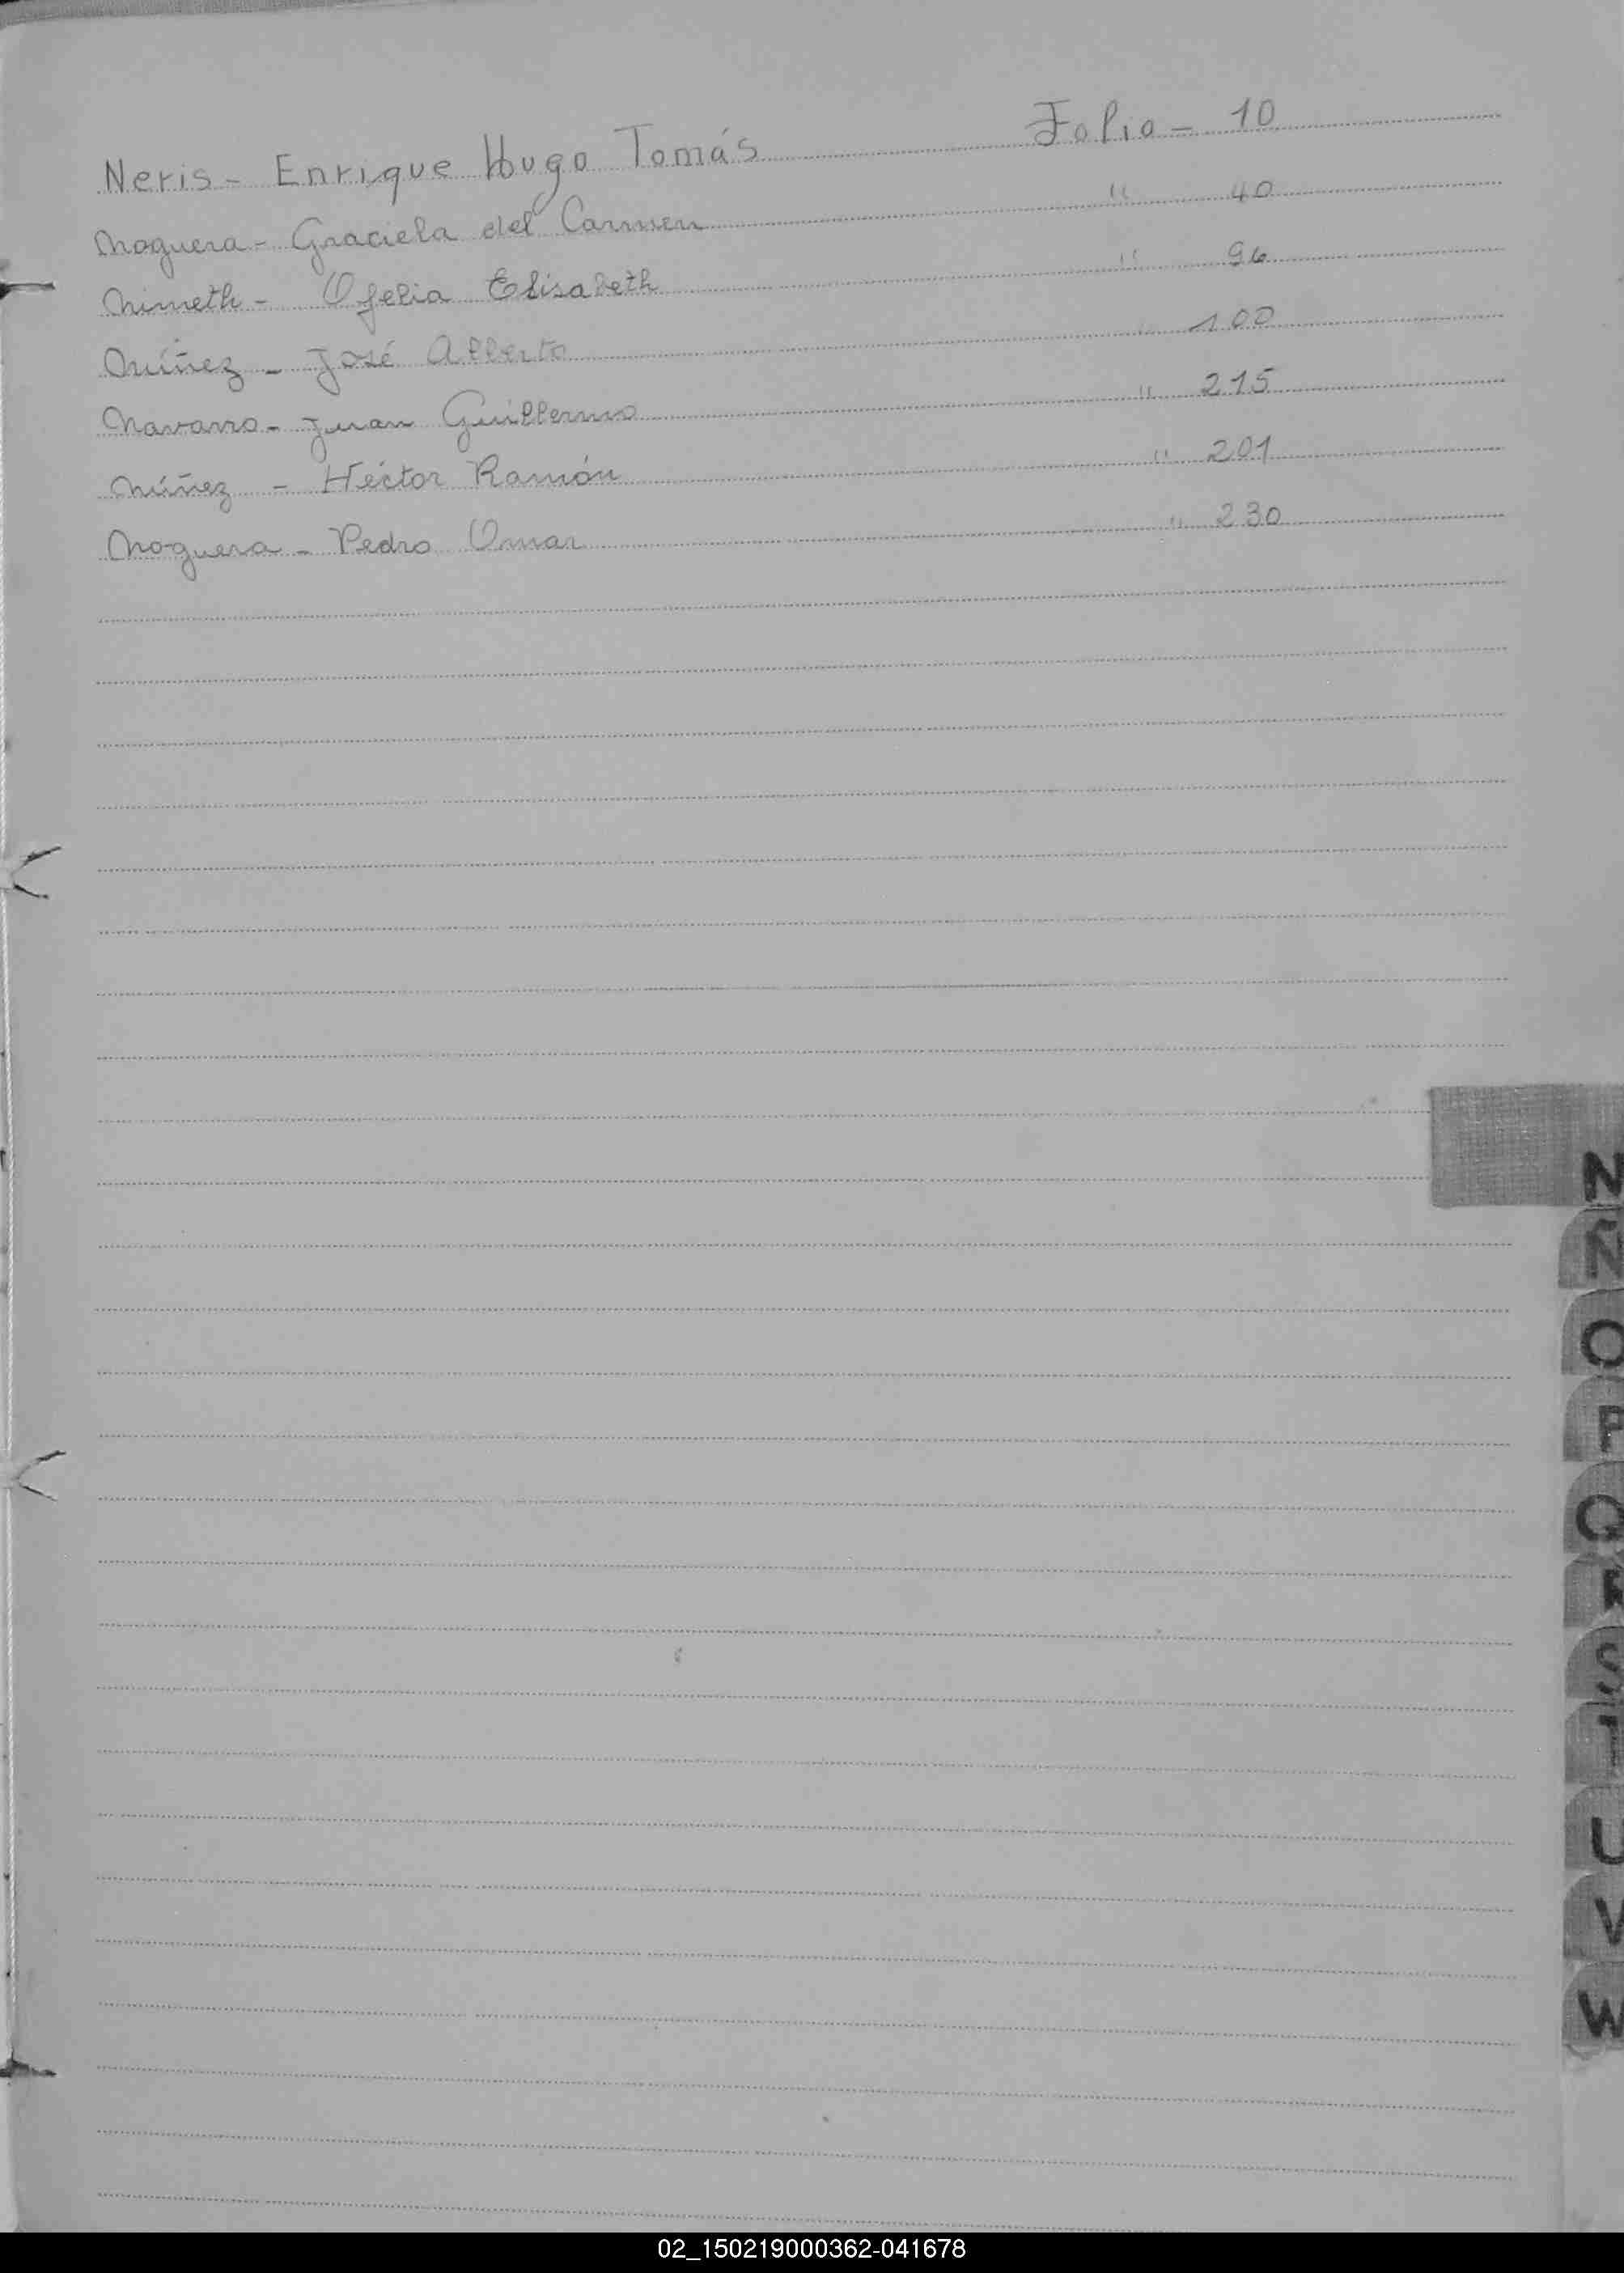 Neris - Enrique Hugo Tomás Folio - 10
Noguera - Graciela del Carmen " 40
Nimeth - Ofelia Elisabeth " 96
Núñez - José Alberto " 100
Navarro - Juan Guillermo " 215
Núñez - Héctor Ramón " 201
Noguera - Pedro Omar " 230
N
Ñ
O
P
Q
R
S
T
U
V
W
02_150219000362-041678